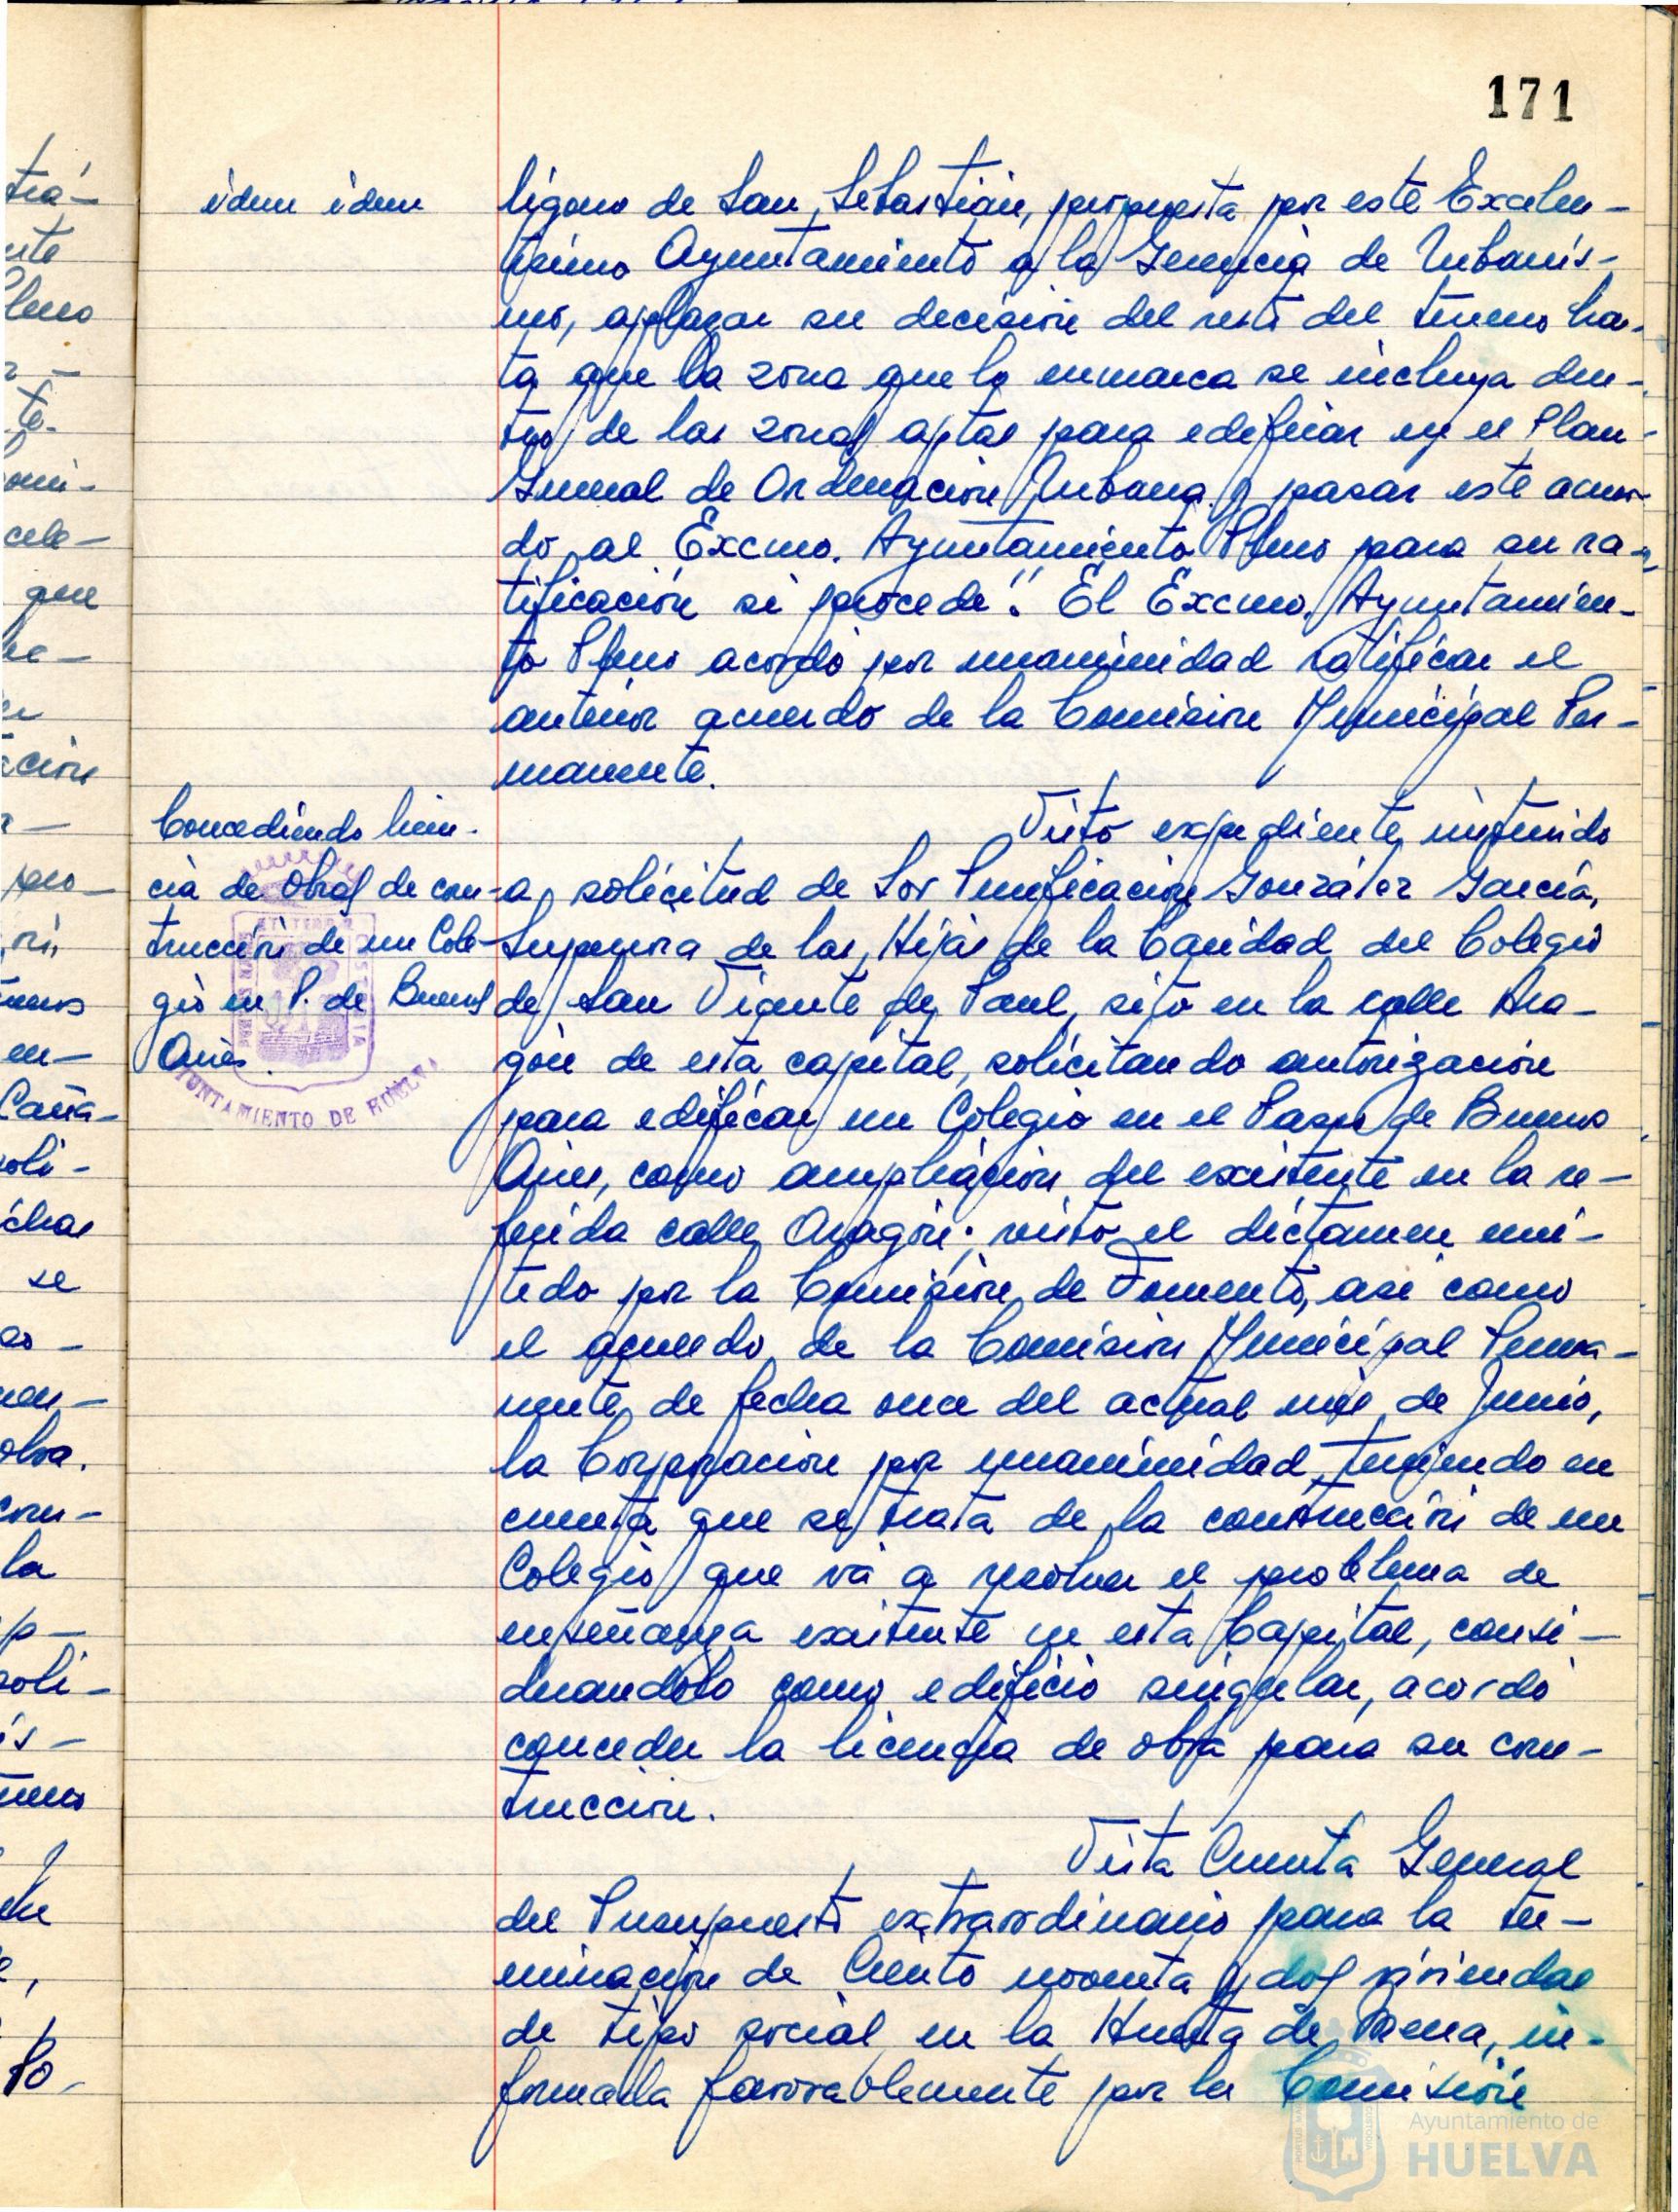 171
idem idem
lígono de San Sebastián, propuesta por este Excelen-
tísimo Ayuntamiento a la Gerencia de Urbanis-
mo, aplazar su decisión del resto del terreno has-
ta que la zona que lo enmarca se incluya den-
tro de las zonas aptas para edificar en el Plan
General de Ordenación Urbana y pasar este acuer-
do al Excmo. Ayuntamiento Pleno para su ra-
tificación si procede". El Excmo. Ayuntamien-
to Pleno acordó por unanimidad ratificar el
anterior acuerdo de la Comisión Municipal Per-
manente.
Concediendo licen-
cia de obras de cons-
trucción de un Cole-
gio en P. de Buenos
Aires.
Visto expediente instruido
a solicitud de Sor Purificación González García,
Superiora de las Hijas de la Caridad del Colegio
de San Vicente de Paul, sito en la calle Ara-
gón de esta capital, solicitando autorización
para edificar un Colegio en el Paseo de Buenos
Aires, como ampliación del existente en la re-
ferida calle Aragón; visto el dictamen emi-
tido por la Comisión de Fomento, asi como
el acuerdo de la Comisión Municipal Perma-
nente de fecha once del actual mes de Junio,
la Corporación por unanimidad, teniendo en
cuenta que se trata de la construcción de un
Colegio que vá a resolver el problema de
enseñanza existente en esta Capital, consi-
derandolo como edificio singular, acordó
conceder la licencia de obra para su cons-
trucción.
Vista Cuenta General
del Presupuesto extraordinario para la ter-
minación de Ciento noventa y dos viviendas
de tipo social en la Huerta de Mena, in-
formada favorablemente por la Comisión
AYUNTAMIENTO DE HUELVA
Ayuntamiento de
HUELVA